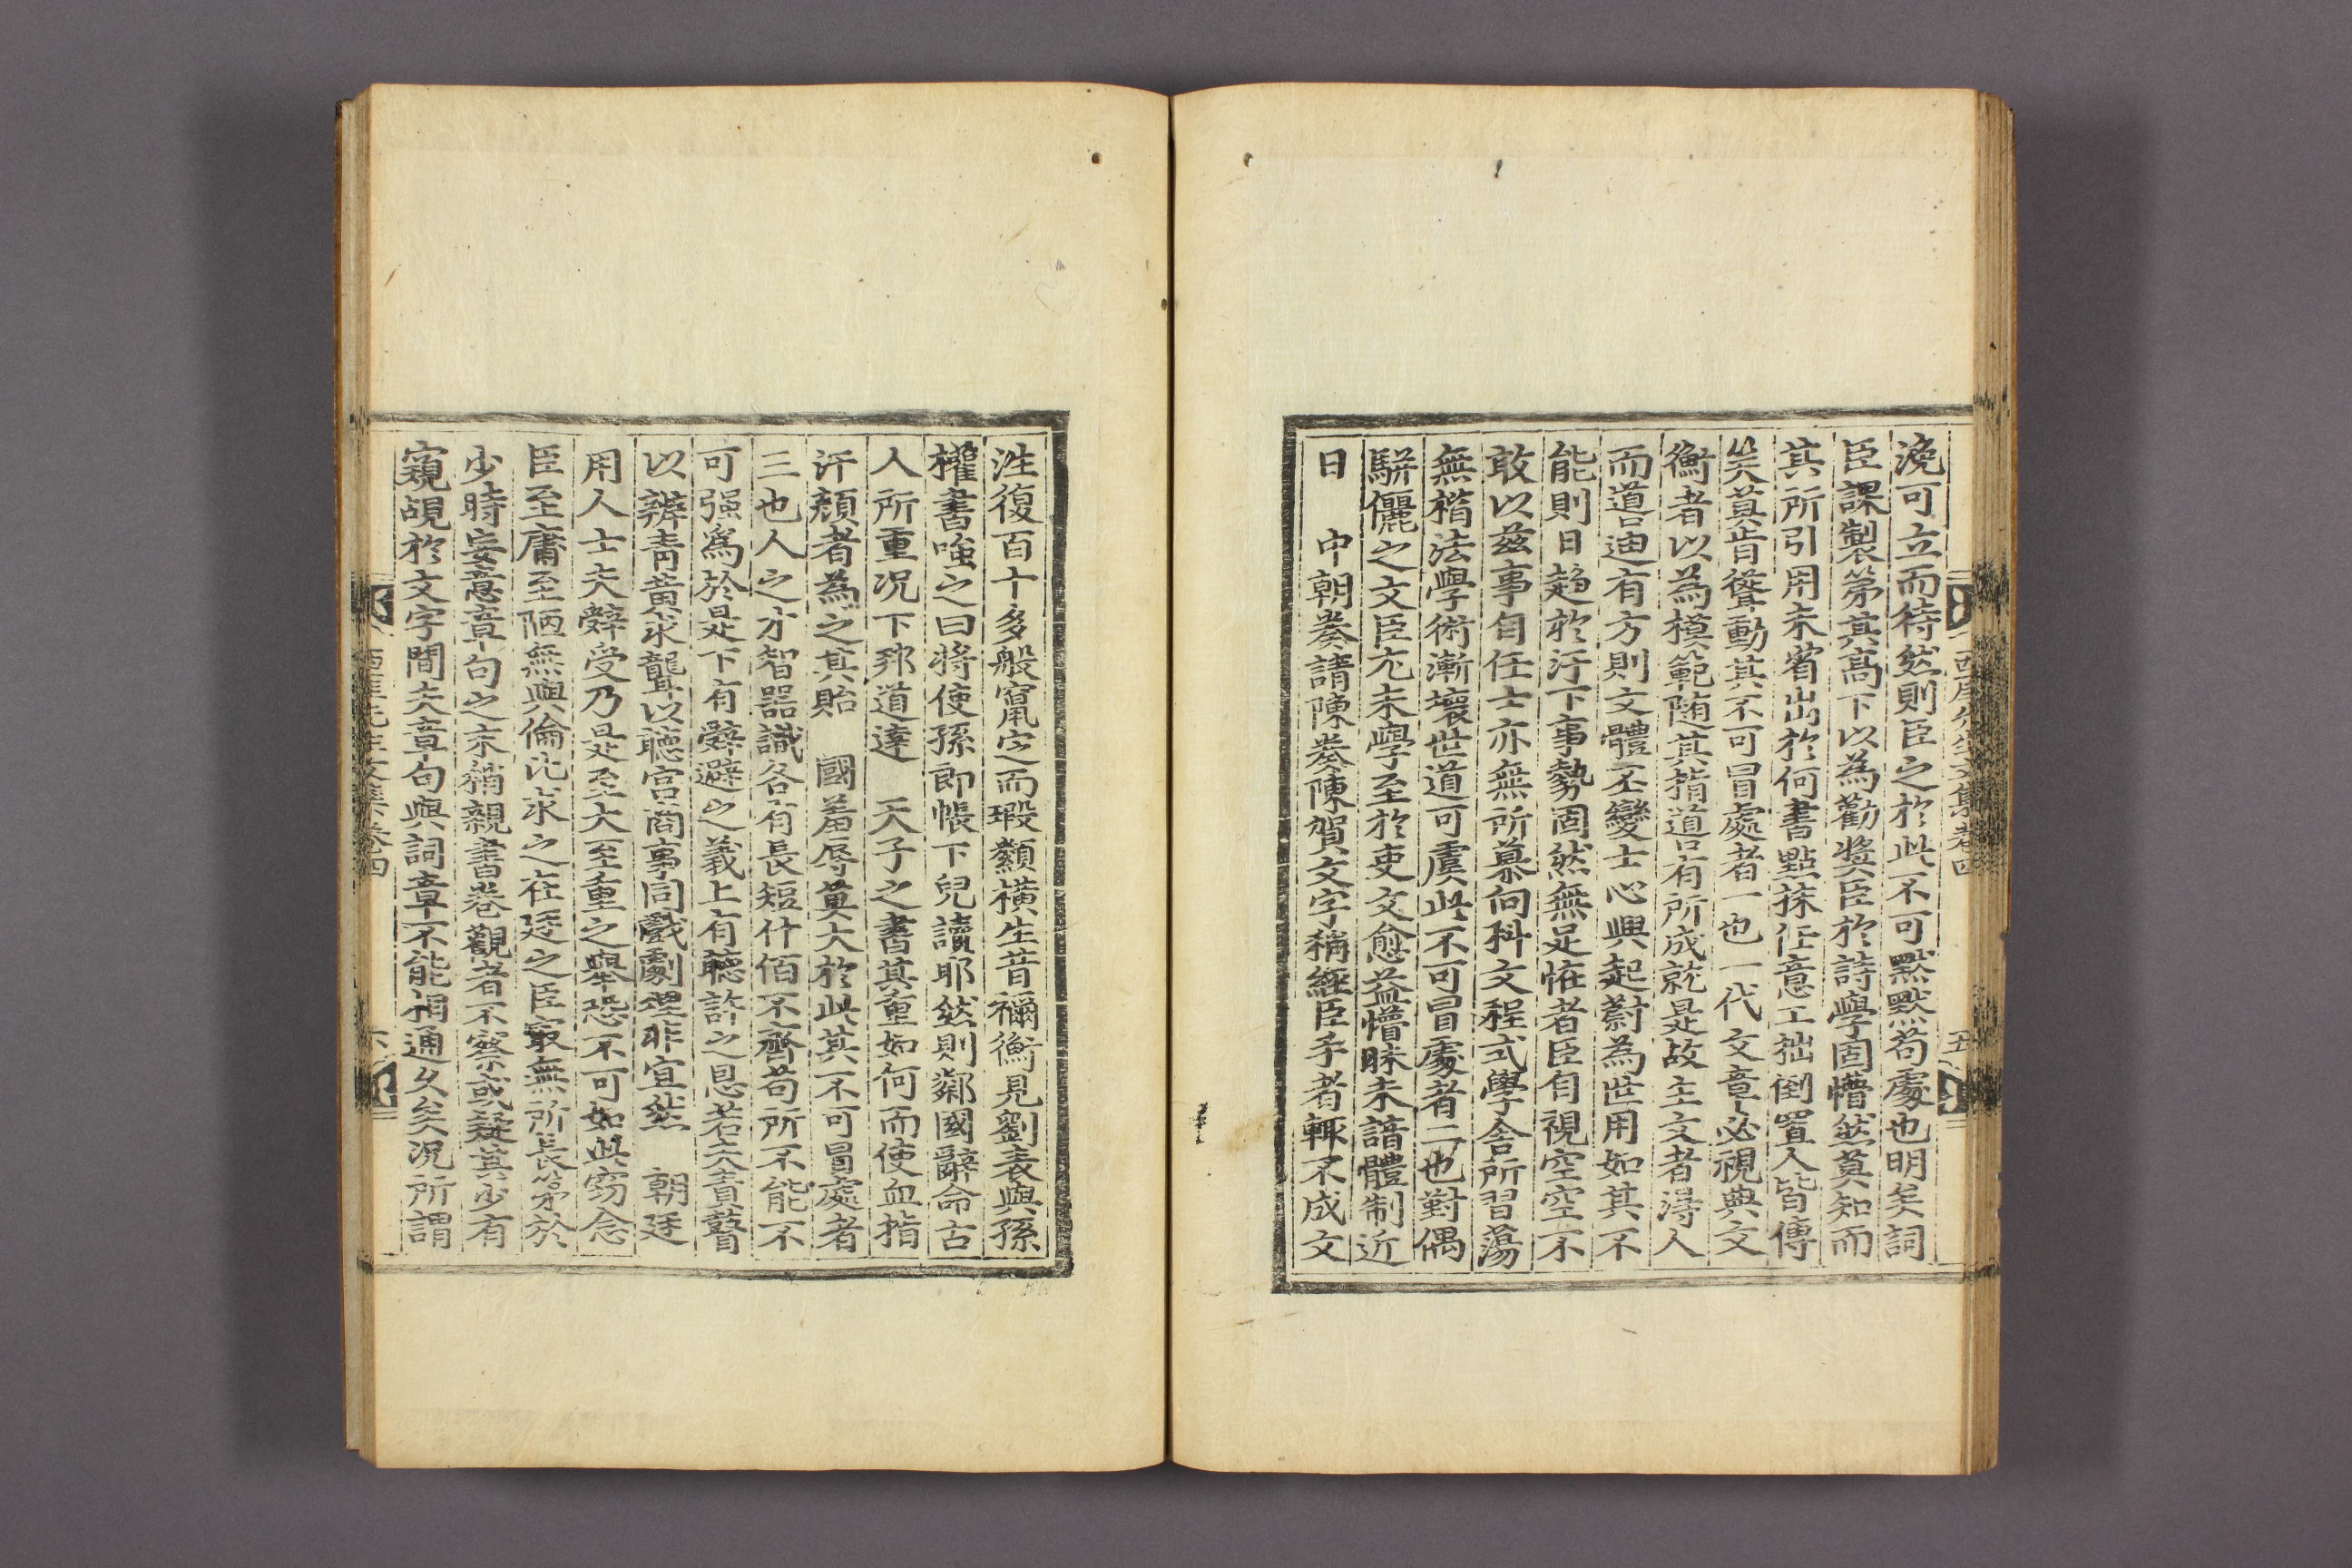 西厓先生文集卷四
五
浼可立而待然則臣之於此不可默默苟處也明矣詞
臣課製第其高下以為勸奬臣於詩學固懵然莫知而
其所引用未省出於何書點抹任意工拙倒置人皆傳
笑莫肯聳動其不可冒處者一也一代文章必視典文
衡者以為模範隨其指道有所成就是故主文者得人
而道迪有方則文體丕變士心興起蔚為世用如其不
能則日趍於汙下事勢固然無足恠者臣自視空空不
敢以玆事自任士亦無所慕向科文程式學舍所習蕩
無楷法學術漸壞世道可虞此不可冒處者二也對偶
騈儷之文臣尤未學至於吏文愈益懵昧未諳體制近
日　中朝奏請陳奏陳賀文字稍經臣手者輒不成文
泩復百十多般竄定而瑕纇橫生昔禰衡見劉表與孫
權書嗤之曰將使孫郞帳下兒讀耶然則鄰國辭命古
人所重况下邦道達　天子之書其重如何而使血指
汗顔者為之其貽　國羞辱莫大於此其不可冒處者
三也人之才智器識各有長短什佰不齊苟所不能不
可强爲於是下有辭避之義上有聽許之恩若夫責瞽
以辨靑黃求聾以聽宮商事同戱劇理非宜然　朝廷
用人士夫辭受乃是至大至重之擧恐不可如此竊念
臣至庸至陋無與倫比求之在廷之臣最無所長第於
少時妄意章句之末稍親書卷觀者不察或疑其少有
窺覘於文字間夫章句與詞章不能相通久矣況所謂
西厓先生文集卷四
六